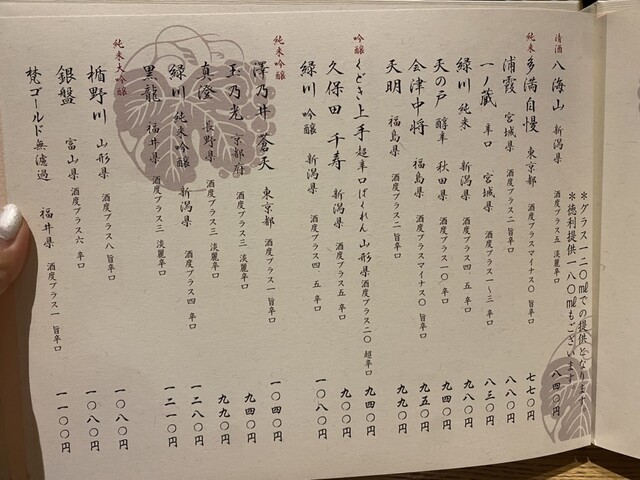 清酒
八海山 新潟県 酒度プラス五 淡麗辛口 八四〇円
＊グラス一二〇㎖での提供となります
＊徳利提供一八〇㎖もございます
純米
多満自慢 東京都 酒度プラスマイナス〇 旨辛口 七七〇円
浦霞 宮城県 酒度プラス二 旨辛口 八八〇円
一ノ蔵 辛口 宮城県 酒度プラス一～三 辛口 八三〇円
緑川 純米 新潟県 酒度プラス四．五 辛口 九八〇円
天の戸 醇辛 秋田県 酒度プラス一〇 辛口 九四〇円
会津中将 福島県 酒度プラスマイナス〇 旨辛口 九五〇円
天明 福島県 酒度プラス二 旨辛口 九九〇円
吟醸
くどき上手 超辛口ばくれん 山形県 酒度プラス二〇 超辛口 九四〇円
久保田 千寿 新潟県 酒度プラス五 辛口 九〇〇円
緑川 吟醸 新潟県 酒度プラス四．五 辛口 一〇八〇円
純米吟醸
澤乃井 蒼天 東京都 酒度プラス一 旨辛口 一〇四〇円
玉乃光 京都府 酒度プラス三 淡麗辛口 九四〇円
真澄 長野県 酒度プラス三 淡麗辛口 九九〇円
緑川 純米吟醸 新潟県 酒度プラス四 辛口 一二八〇円
黒龍 福井県 酒度プラス三 淡麗辛口 一二一〇円
純米大吟醸
楯野川 山形県 酒度プラス八 旨辛口 一〇八〇円
銀盤 富山県 酒度プラス六 辛口 一〇八〇円
梵ゴールド無濾過 福井県 酒度プラス一 旨辛口 一一〇〇円